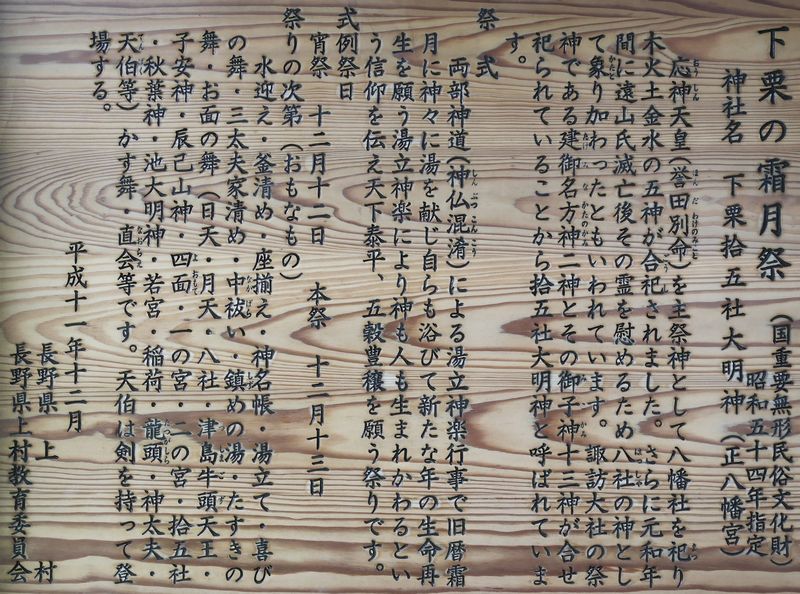 下栗の霜月祭
（国重要無形民俗文化財）
昭和五十四年指定
神社名　下栗拾五社大明神（正八幡宮）
応神天皇（誉田別命）を主祭神として八幡社を祀り
木火土金水の五神が合祀されました。さらに元和年
間に遠山氏滅亡後その霊を慰めるため八社の神とし
て象り加わったともいわれています。諏訪大社の祭
神である建御名方神二神とその御子神十三神が合せ
祀られていることから拾五社大明神と呼ばれていま
す。
祭式
両部神道（神仏混淆）による湯立神楽行事で旧暦霜
月に神々に湯を献じ自らも浴びて新たな年の生命再
生を願う湯立神楽により神も人も生まれかわるとい
う信仰を伝え天下泰平、五穀豊穣を願う祭りです。
式例祭日
宵祭　十二月十二日　本祭　十二月十三日
祭りの次第（おもなもの）
水迎え・釜清め・座揃え・神名帳・湯立て・喜び
の舞・三太夫家清め・中祓い・鎮めの湯・たすきの
舞・お面の舞（日天・月天・八社・津島牛頭天王・
子安神・辰己山神・四面・一の宮・二の宮・拾五社
・秋葉神・池大明神・若宮・稲荷・龍頭・神太夫・
天伯等）かす舞・直会等です。天伯は剣を持って登
場する。
平成十一年十二月
長野県上村
長野県上村教育委員会